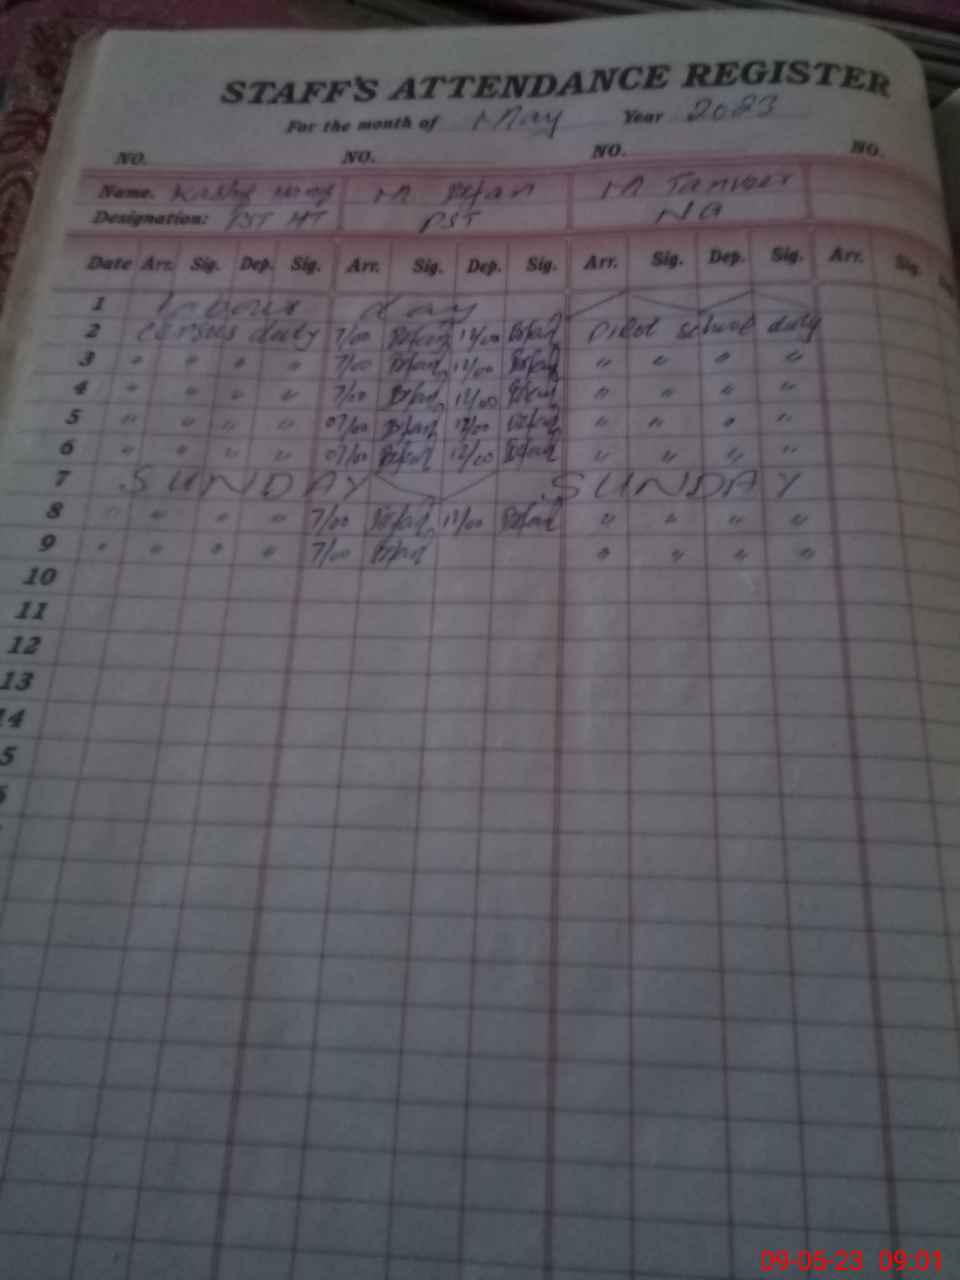 STAFF'S ATTENDANCE REGISTER
For the month of May Year 2023
NO. NO. NO. NO.
Name. M M Tanveer
Designation: PST HT PST NQ
Date Arr. Sig. Dep. Sig. Arr. Sig. Dep. Sig. Arr. Sig. Dep. Sig. Arr. Sig.
1 Labour day
2 census duty 7/00 12/00 Pilot school duty
3 " " " " 7/00 12/00 " " " "
4 " " " " 7/00 12/00 " " " "
5 " " " " 07/00 12/00 " " " "
6 " " " " 07/00 12/00 " " " "
7 SUNDAY SUNDAY
8 " " " " 7/00 12/00 " " " "
9 " " " " 7/00 " " " "
10
11
12
13
14
5
09-05-23 09:01